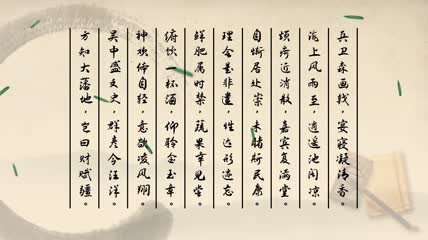 兵卫森画戟，宴寝凝清香。
海上风雨至，逍遥池阁凉。
烦疴近消散，嘉宾复满堂。
自惭居处崇，未睹斯民康。
理会是非遣，性达形迹忘。
鲜肥属时禁，蔬果幸见尝。
俯饮一杯酒，仰聆金玉章。
神欢体自轻，意欲凌风翔。
吴中盛文史，群彦今汪洋。
方知大藩地，岂曰财赋疆。